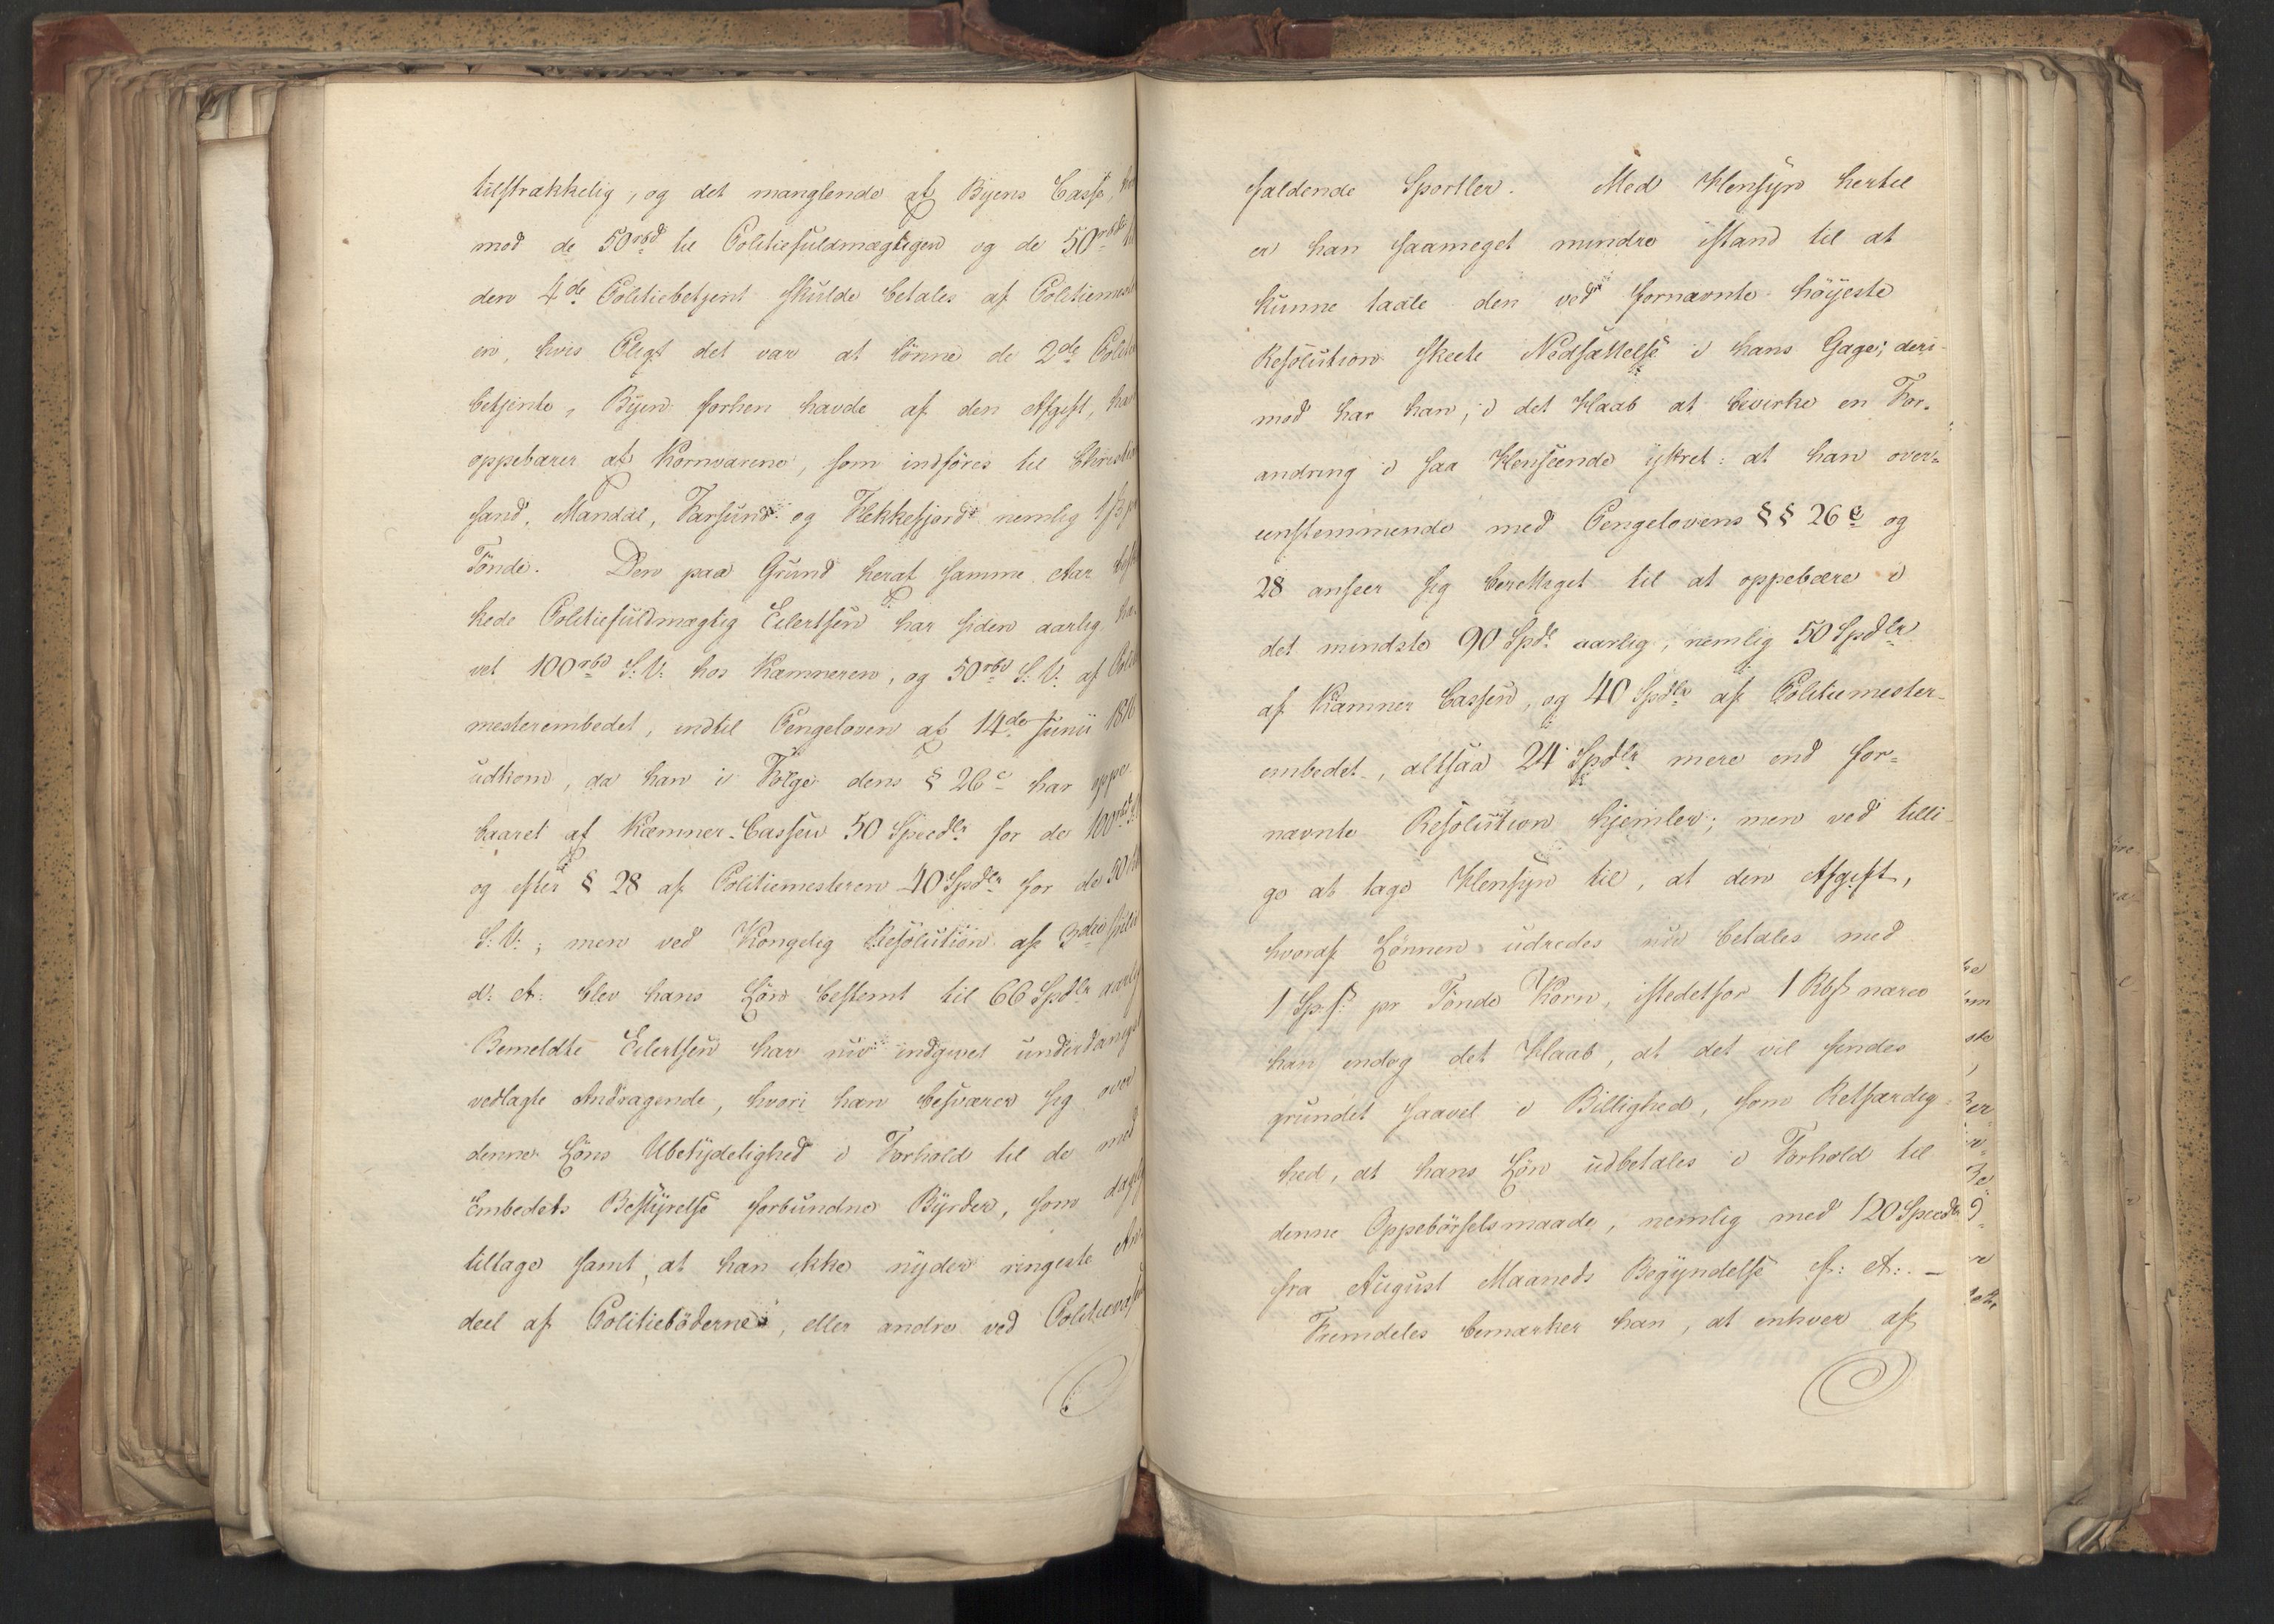 tilstrækkelig, og det manglende af Byens Casse,
mod de 50 rbd til Politiefuldmægtigen og de 50 rbd
den 4de Politiebetjent skulde betales af Politiemest
en, hvis Pligt det var at lönne de 2de Politie
betjente, Byen forhen havde af den Afgift, han
oppebærer af Kornvarene, som indföres til Christian
sand, Mandal, Farsund og Flekkefjord nemlig 1 ß pr
Tönde. Den paa Grund heraf samme Aar
kede Politiefuldmægtig Eilertsen har siden aarlig hæ-
vet 100 rbd S: V: hos Kæmneren, og 50 rbd S: V: af Politie
mesterembedet, indtil Pengeloven af 14de Junii 1816
udkom, da han i Fölge dens § 26 c har oppe
baaret af Kæmner-Cassen 50 Speedlr for de 100 rbd
og efter § 28 af Politiemesteren 40 Spdlr for de 50
S: V:; men ved Kongelig Resolution af 3die Julii
d: A: blev hans Lön bestemt til 66 Spdlr aarlig
Bemeldte Eilertsen har nu indgivet underdanigst
vedlagte Andragende, hvori han besværer sig over
denne Löns Ubetydelighed i Forhold til de med
Embedets Bestyrelse forbundne Byrder, som daglig
tiltage samt, at han ikke nyder ringeste An-
deel af Politiebøderne, eller andre ved Politievæs
faldende Sportler. Med Hensyn hertil
er han saameget mindre istand til at
kunne taale den ved fornævnte höyeste
Resolution skeete Nedsættelse i hans Gage; deri-
mod har han, i det Haab at bevirke en For-
andring i saa Henseende yttret: at han over-
eenstemmende med Pengelovens §§ 26 c og
28 anseer sig berettiget til at oppebære i
det mindste 90 Spdlr aarlig, nemlig 50 Spdlr
af Kæmner Cassen, og 40 Spdlr af Politiemester-
embedet, altsaa 24 Spdlr mere end for-
nævnte Resolution hjemler; men ved tilli-
ge at tage Hensyn til, at den Afgift,
hvoraf Lönnen udredes nu betales med
1 Sp.ß. pr Tönde Korn, istedetfor 1 Rbß nærer
han endog det Haab, at det vil findes
grundet saavel i Billighed, som Retfærdig-
hed, at hans Lön udbetales i Forhold til
denne Oppebörselsmaade, nemlig med 120 Speedlr
fra August Maaneds Begyndelse f: A: —
Fremdeles bemærker han, at enhver af